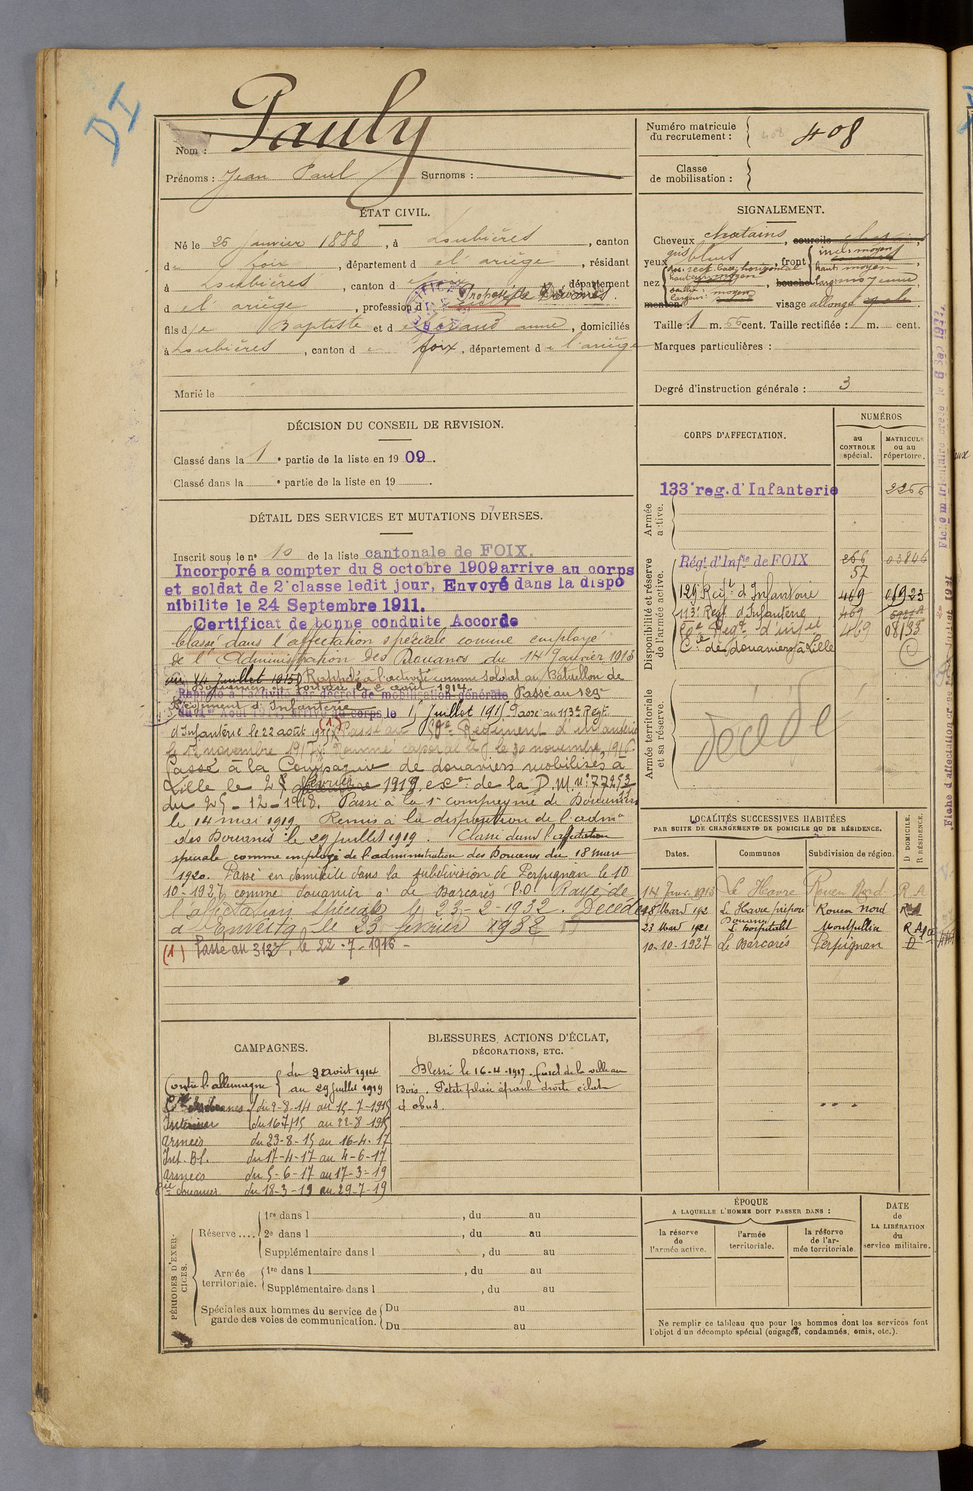 DI
Nom : Pauly
Prénoms : Jean Paul Surnoms :
Numéro matricule du recrutement : 408
Classe de mobilisation :
ÉTAT CIVIL.
Né le 26 janvier 1888, à Loubières, canton
de Foix, département de l'ariège, résidant
à Loubières, canton de Foix, département
d e l'ariège, profession d
fils de Baptiste et de anne, domiciliés
à Loubières, canton d e foix, département de l'ariège
Marié le
SIGNALEMENT.
Cheveux chatains, sourcils
yeux gris bleus, front incl: moyen haut: moyen
nez dos: rect. base: horizontal, bouche larg: moyenne,
menton visage allongé
Taille : 1 m. 55 cent. Taille rectifiée : 1 m. cent.
Marques particulières :
Degré d'instruction générale : 3
DÉCISION DU CONSEIL DE REVISION.
Classé dans la 1e partie de la liste en 1909.
Classé dans la e partie de la liste en 19
DÉTAIL DES SERVICES ET MUTATIONS DIVERSES.
Inscrit sous le n° 10 de la liste cantonale de FOIX.
Incorporé a compter du 8 octobre 1909 arrive au corps
et soldat de 2e classe ledit jour, Envoyé dans la dispo
nibilite le 24 Septembre 1911.
Certificat de bonne conduite Accorde
Classé dans l'affectation spéciale comme employé
de l'Administration des Douanes du 14 Janvier 1913
au 14 Juillet 1915 Rappelé à l'activité comme soldat au Bataillon de
Douaniers août 1914
Rappelé à l'activité par décret de mobilisation générale Passé au 129e
Régiment d'Infanterie
le 15 Juillet 1915 Passé au 113e Régt
d'Infanterie le 22 août 1915 (1) Passé au Régiment d'infanterie
le 12 novembre 1917 Nommé caporal le 30 novembre 1916
Passé à la Compagnie de douaniers mobilisés à
Lille le 28 février 1919, exon de la D.M. n° 77253
du 25-12-1918. Passé à la 1e compagnie de Douaniers
le 14 mai 1919. Remis à la disposition de l'admon
des Douanes le 29 juillet 1919. Classé dans l'affectation
spéciale comme employé de l'administration des Douanes du 18 mars
1920. Passé en domicile dans la subdivision de Perpignan le 10
10-1927 comme douanier à de Barcarès P.O. Rayé de
l'affectation spéciale le 23-2-1932. Décédé
à Enveitg le 23 février 1932
(1) Passé au 313e, le 22-7-1916 -
CORPS D'AFFECTATION.
NUMÉROS
au CONTROLE spécial.
MATRICULE ou au répertoire.
Armée active.
133e reg. d'Infanterie 2266
Disponibilité et réserve de l'armée active.
Régt d'Infie de FOIX 266 03846
57
129 Regt d'Infanterie 469 01923
113e Regt d'Infanterie 469
Regt d'infie 469 08133
Cie de douaniers à Lille
Armée territoriale et sa réserve.
décédé
LOCALITÉS SUCCESSIVES HABITÉES
PAR SUITE DE CHANGEMENTS DE DOMICILE OU DE RÉSIDENCE.
Dates. Communes Subdivision de région. D DOMICILE. R RÉSIDENCE.
14 Janv. 1913 Le Havre Rouen Nord R A
18 Mars 192 Le Havre Rouen Nord R
Douanes
23 Mars 1921 L'hospitalet Montpellier R A
10-10-1927 Le Barcarès Perpignan D
CAMPAGNES.
Contre l'allemagne du 2 août 1914
au 29 juillet 1919
du 2-8-14 au 15-7-1915
Intérieur du 16 7/15 au 22-8-1915
armées du 23-8-15 au 16-4-17
Int. Bl. du 17-4-17 au 4-6-17
armées du 5-6-17 au 17-3-19
Cie douanier du 18-3-19 au 29-7-19
BLESSURES, ACTIONS D'ÉCLAT,
DÉCORATIONS, ETC.
Blessé le 16-4-1917. de la ville au
Bois. Petite plaie épaule droite éclat
d'obus.
PÉRIODES D'EXERCICES.
Réserve.... 1re dans l , du au
2e dans l , du au
Supplémentaire dans l , du au
Armée territoriale. 1re dans l , du au
Supplémentaire dans l , du au
Spéciales aux hommes du service de garde des voies de communication. Du au
Du au
ÉPOQUE
A LAQUELLE L'HOMME DOIT PASSER DANS :
la réserve de l'armée active.
l'armée territoriale.
la réserve de l'armée territoriale
DATE de LA LIBÉRATION du service militaire.
Ne remplir ce tableau que pour les hommes dont les services font
l'objet d'un décompte spécial (engagés, condamnés, omis, etc.).